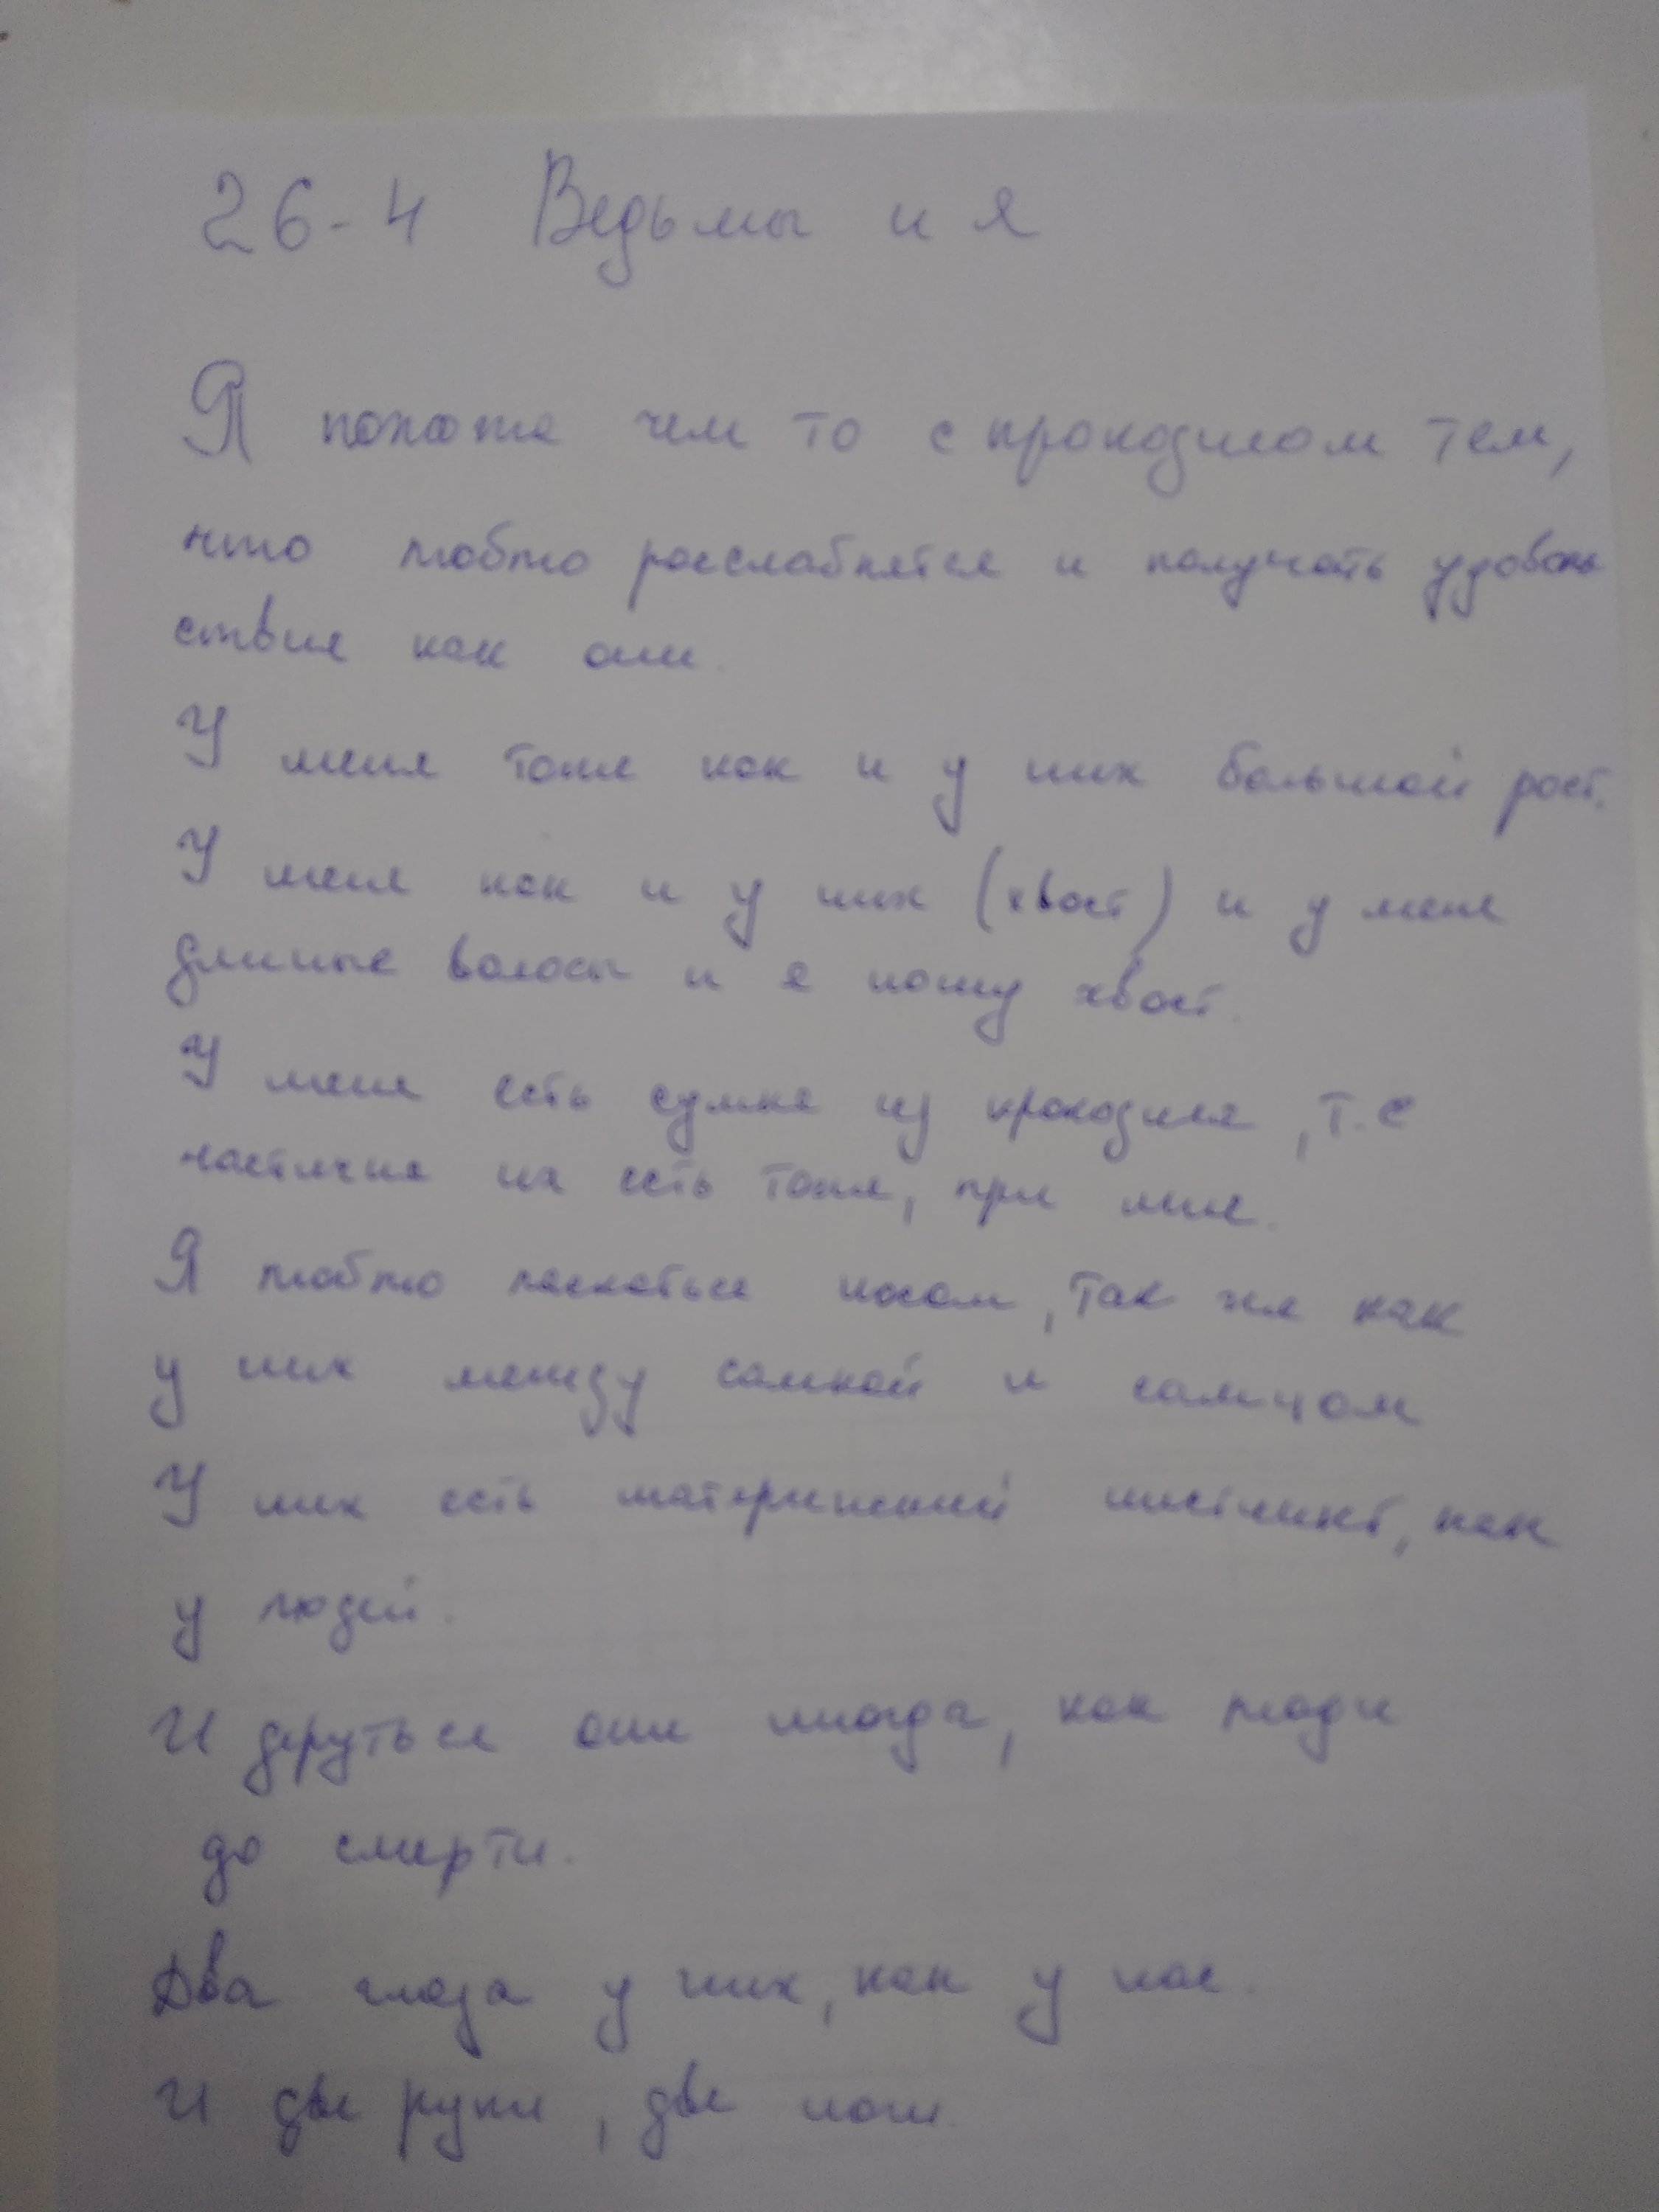 26-4 Ведьмы и я
Я похожа чем то с крокодилом тем,
что люблю расслаблятся и получать удоволь
ствие как они.
У меня тоже как и у них большой рост.
У меня как и у них (хвост) и у меня
длиные волосы и я ношу хвост.
У меня есть сумка из крокодила, т.е
частичка их есть тоже, при мне.
Я люблю ласкаться носом, так же как
у них между самкой и самцом
У них есть материнский инстинкт, как
у людей.
И деруться они иногда, как люди
до смерти.
Два глаза у них, как у нас.
И две руки, две ноги.